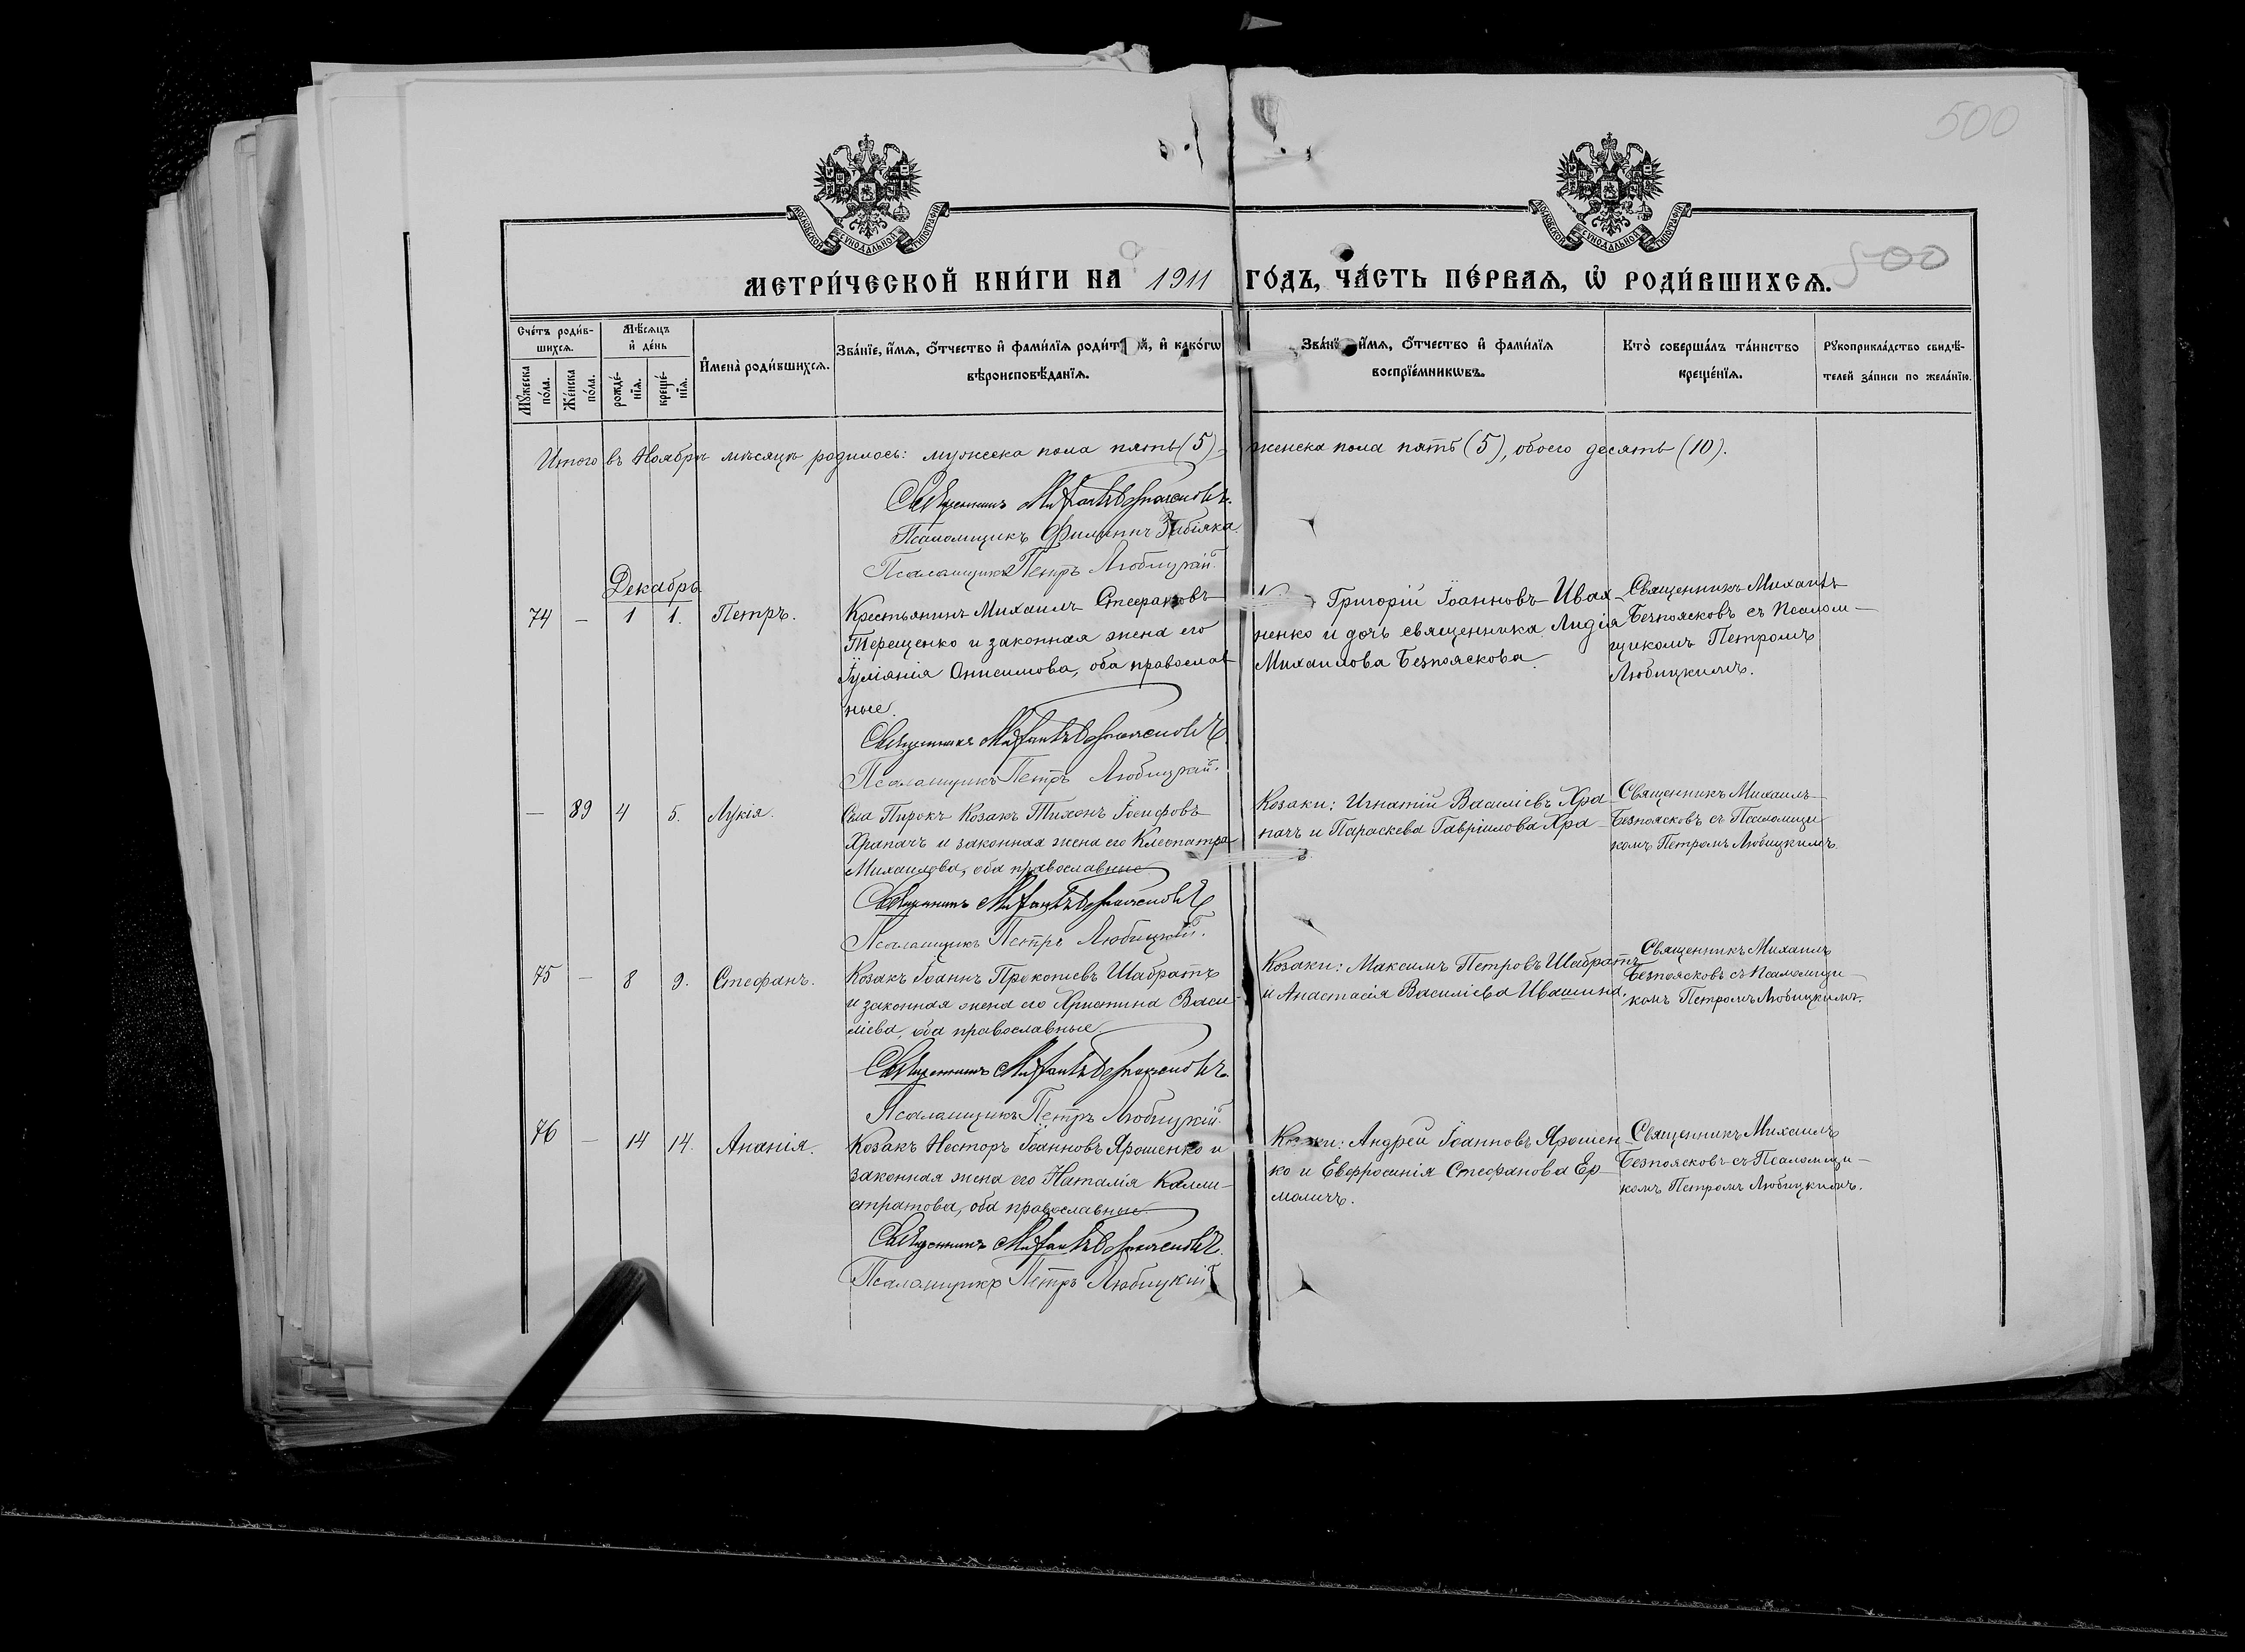 500
МОСКОВСКОЙ СѴНОДАЛЬНОЙ ТИПОГРАФІИ
МОСКОВСКОЙ СѴНОДАЛЬНОЙ ТИПОГРАФІИ
МЕТРИ́ЧЕСКОЙ КНИ́ГИ НА 1911 ГО́ДЪ, ЧА́СТЬ ПЕ́РВАѦ, Ѽ РОДИ́ВШИХСѦ.
500
Сче́тъ роди́вшихсѧ.
Мꙋ́жеска по́ла.
Же́нска по́ла.
Мѣ́сѧцъ и҆ де́нь
рожде́нїѧ.
креще́нїѧ.
И҆мена̀ роди́вшихсѧ.
Зва́нїе, и҆́мѧ, ѻ҆́тчество и҆ фами́лїѧ роди́т й, и҆ како́гѡ
вѣроисповѣ́данїѧ.
Зва́нї и҆́мѧ, ѻ҆́тчество и҆ фами́лїѧ
воспрїе́мникѡвъ.
Кто̀ соверша́лъ та́инство
креще́нїѧ.
Рꙋкоприкла́дство свидѣ́-
телей за́писи по жела́нїю.
Итого въ Ноябрѣ мѣсяцѣ родилось: мужеска пола пять (5), женска пола пять (5), обоего десять (10).
Священникъ Михаилъ Безпоясковъ.
Псаломщикъ Филиппъ Забіяка.
Псаломщикъ Петръ Любицкій.
Декабрь
74 — 1 1. Петръ.
Крестьянинъ Михаилъ Стефановъ
Терещенко и законная жена его
Іуліанія Онисимова, оба православ
ные.
Григорій Іоанновъ Ивах
ненко и дочь священника Лидія
Михаилова Безпояскова.
Священникъ Михаилъ
Безпоясковъ съ Псалом-
щикомъ Петромъ
Любицкимъ.
Священникъ Михаилъ Безпоясковъ.
Псаломщикъ Петръ Любицкій.
— 89 4 5. Лукія.
Козакъ Тихонъ Іосифовъ
Храпачъ и законная жена его Клеопатра
Михаилова, оба православные
Козаки: Игнатій Василіевъ Хра
пачъ и Параскева Гавріилова Хра
Священникъ Михаилъ
Безпоясковъ съ Псаломщи
комъ Петромъ Любицкимъ.
Священникъ Михаилъ Безпоясковъ
Псаломщикъ Петръ Любицкій.
75 — 8 9. Стефанъ.
Козакъ Іоаннъ Прокопіевъ Шабратъ
и законная жена его Христина Васи-
ліева, оба православные.
Козаки: Максимъ Петровъ Шабратъ
и Анастасія Василіева Ивашина.
Священникъ Михаилъ
Безпоясковъ съ Псаломщи-
комъ Петромъ Любицкимъ.
Священникъ Михаилъ Безпоясковъ.
Псаломщикъ Петръ Любицкій.
76 — 14 14. Ананія.
Козакъ Несторъ Іоанновъ Ярошенко и
законная жена его Наталія Калли-
стратова, оба православные
Козаки: Андрей Іоанновъ Ярошен
ко и Евфросинія Стефанова Ер
моличъ.
Священникъ Михаилъ
Безпоясковъ съ Псаломщи-
комъ Петромъ Любицкимъ.
Священникъ Михаилъ Безпоясковъ.
Псаломщикъ Петръ Любицкій